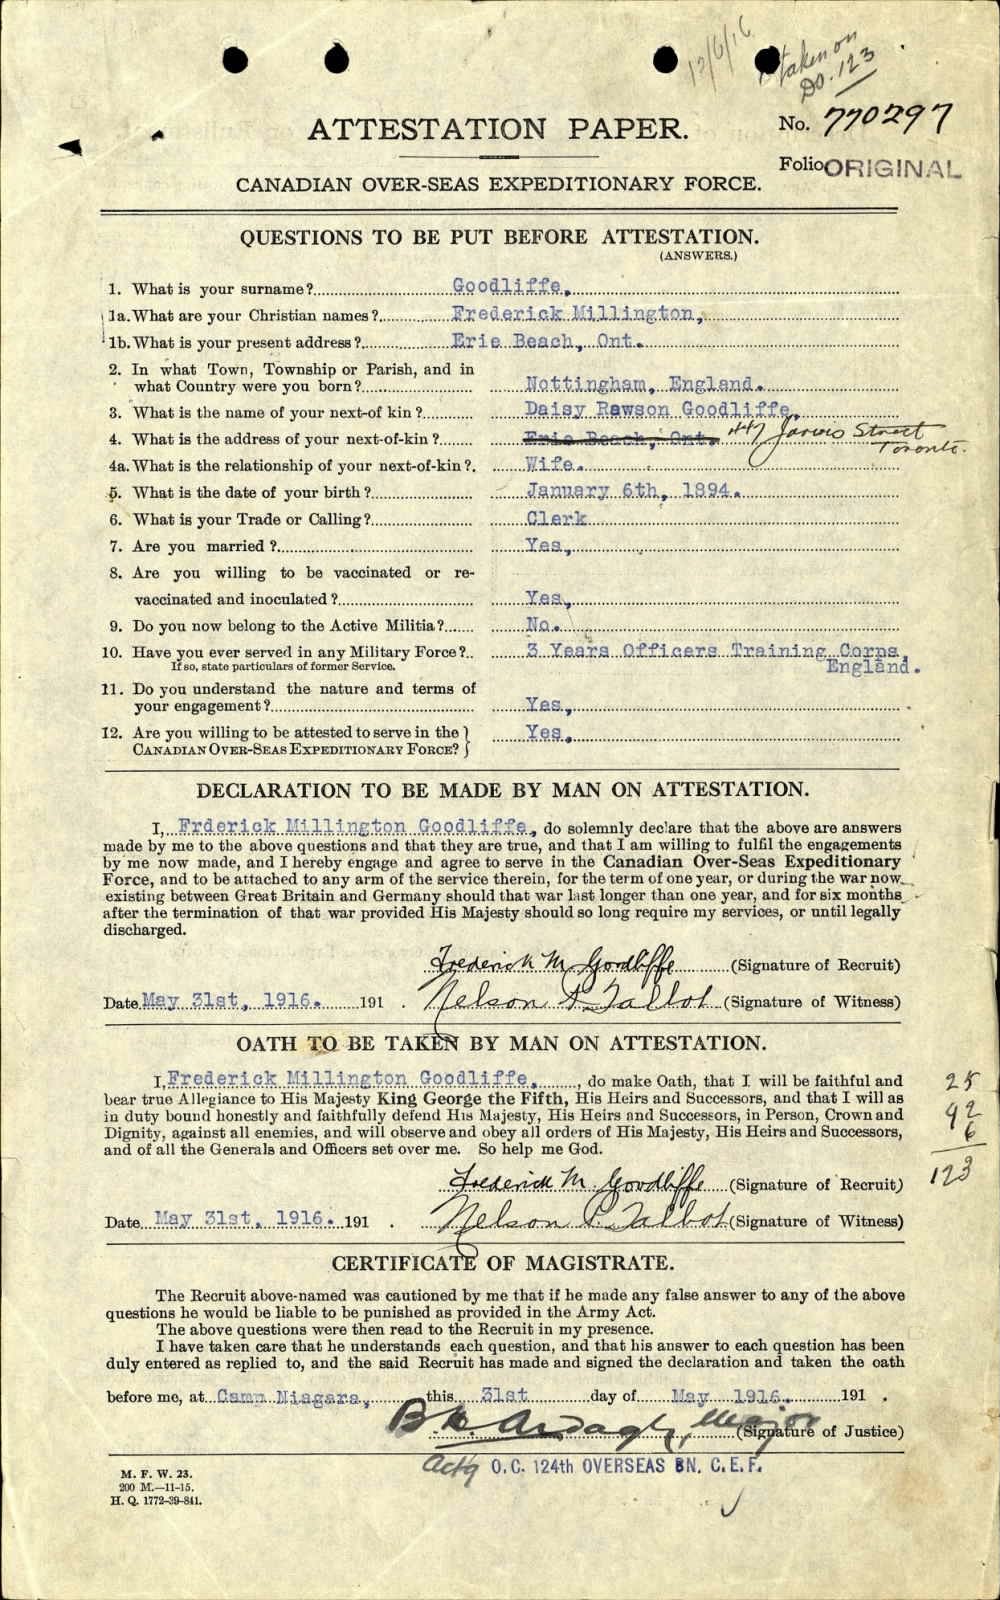 12/6/16
taken on
Do. 123
ATTESTATION PAPER.
No. 770297
Folio ORIGINAL
CANADIAN OVER-SEAS EXPEDITIONARY FORCE.
QUESTIONS TO BE PUT BEFORE ATTESTATION.
(ANSWERS.)
1. What is your surname? Goodliffe,
1a. What are your Christian names? Frederick Millington,
1b. What is your present address? Erie Beach, Ont.
2. In what Town, Township or Parish, and in
what Country were you born? Nottingham, England.
3. What is the name of your next-of kin? Daisy Rawson Goodliffe,
4. What is the address of your next-of-kin? Erie Beach, Ont. 447 Jarvis Street
Toronto.
4a. What is the relationship of your next-of-kin? Wife.
5. What is the date of your birth? January 6th, 1894.
6. What is your Trade or Calling? Clerk
7. Are you married? Yes,
8. Are you willing to be vaccinated or re-
vaccinated and inoculated? Yes,
9. Do you now belong to the Active Militia? No.
10. Have you ever served in any Military Force? 3 Years Officers Training Corps,
If so, state particulars of former Service. England.
11. Do you understand the nature and terms of
your engagement? Yes,
12. Are you willing to be attested to serve in the } Yes.
CANADIAN OVER-SEAS EXPEDITIONARY FORCE?
DECLARATION TO BE MADE BY MAN ON ATTESTATION.
I, Frderick Millington Goodliffe, do solemnly declare that the above are answers
made by me to the above questions and that they are true, and that I am willing to fulfil the engagements
by me now made, and I hereby engage and agree to serve in the Canadian Over-Seas Expeditionary
Force, and to be attached to any arm of the service therein, for the term of one year, or during the war now
existing between Great Britain and Germany should that war last longer than one year, and for six months
after the termination of that war provided His Majesty should so long require my services, or until legally
discharged.
Frederick M Goodliffe (Signature of Recruit)
Date May 31st, 1916. 191 . Nelson P. Talbot (Signature of Witness)
OATH TO BE TAKEN BY MAN ON ATTESTATION.
I, Frederick Millington Goodliffe, , do make Oath, that I will be faithful and
bear true Allegiance to His Majesty King George the Fifth, His Heirs and Successors, and that I will as
in duty bound honestly and faithfully defend His Majesty, His Heirs and Successors, in Person, Crown and
Dignity, against all enemies, and will observe and obey all orders of His Majesty, His Heirs and Successors,
and of all the Generals and Officers set over me. So help me God.
25
92
6
123
Frederick M. Goodliffe (Signature of Recruit)
Date May 31st, 1916. 191 . Nelson P. Talbot (Signature of Witness)
CERTIFICATE OF MAGISTRATE.
The Recruit above-named was cautioned by me that if he made any false answer to any of the above
questions he would be liable to be punished as provided in the Army Act.
The above questions were then read to the Recruit in my presence.
I have taken care that he understands each question, and that his answer to each question has been
duly entered as replied to, and the said Recruit has made and signed the declaration and taken the oath
before me, at Camp Niagara, this 31st day of May 1916. 191 .
B. H. Ardagh, Major (Signature of Justice)
Actg O.C. 124th OVERSEAS BN. C.E.F.
M. F. W. 23.
200 M.—11-15.
H. Q. 1772-39-841.